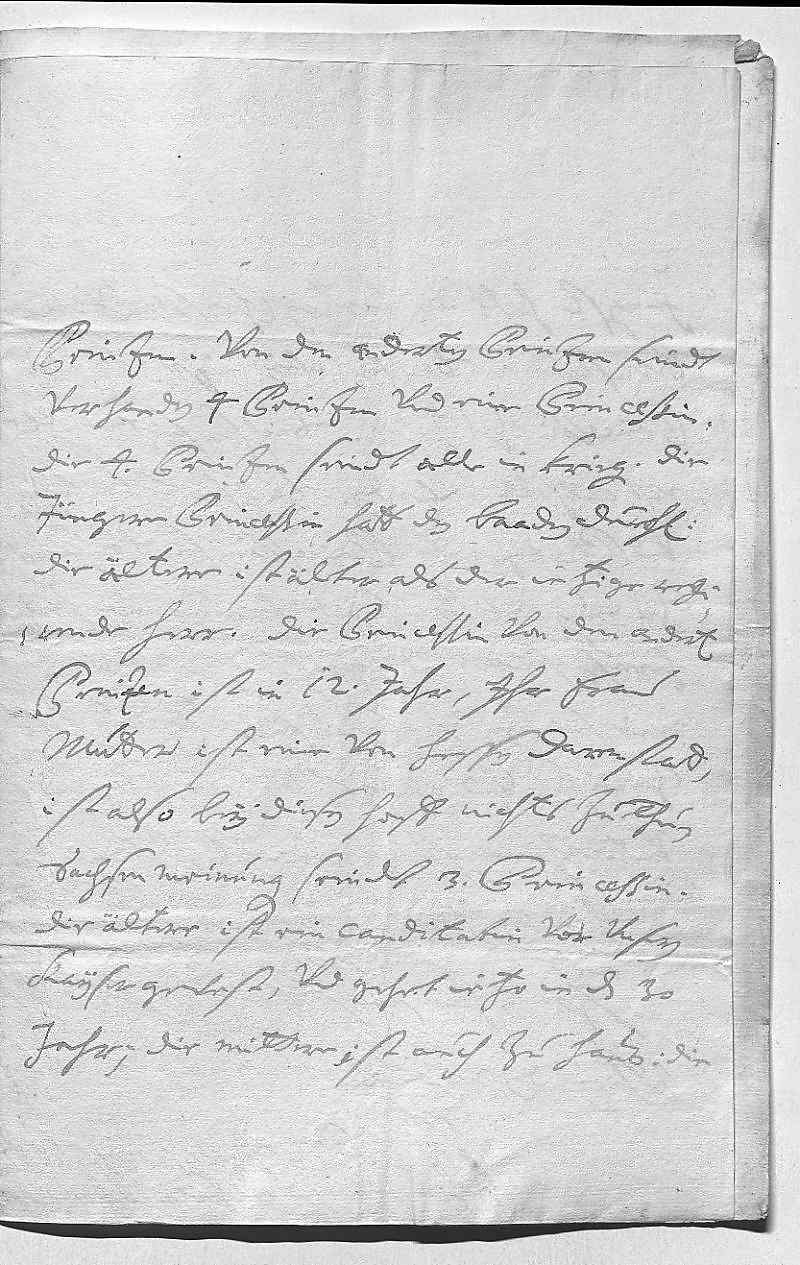 Printzen. Von dem andertn Printzen seindt
Verhanden 4 Printzen Vnd eine Princessin.
die 4. Printzen seindt alle in krieg. die
Jüngere Princessin hatt der baaden durchl:
die ältere ist älter als der ietzige regi
rende herr. die Princessin Von dem andern
Printzen ist in 12. Jahr, Ihr Frau
Mutter ist eine Von hessen Darmstatt,
ist also bey diesen hoff nichts zu thun
Sachsen meinung seindt 3. Princessin.
die ältere ist ein canditatin Vor Vnsern
Kayser gewest, Vnd gehet ietzo in dz 30
Jahr, die mittlere ist auch zu haus: die